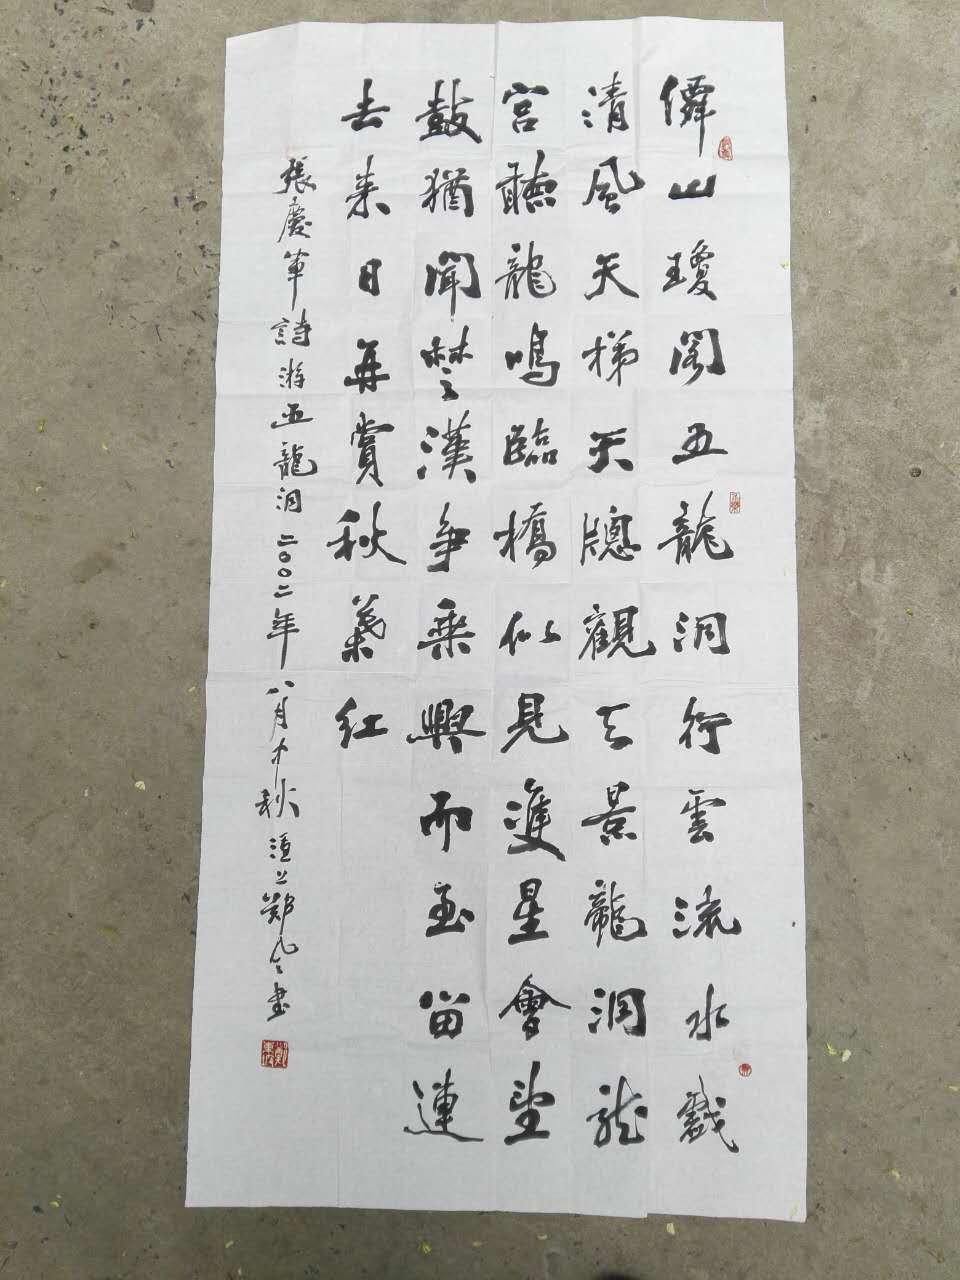 僊山瓊閣五龍洞行雲流水戲
清風天梯天牕觀天景龍洞龍
宮聽龍鳴臨橋似見雙星會望
鼓猶聞楚漢爭乘興而至留連
去来日再賞秋葉红
張慶軍詩游五龍洞二〇〇二年八月中秋 鄭 書